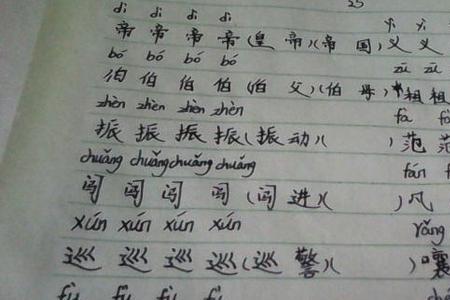 25
dì dì dì dì yì yì
帝 帝 帝 帝 (皇 帝)(帝 国) 义 义
bó bó bó bó zǔ zǔ
伯 伯 伯 伯 (伯 父)(伯 母) 祖 祖
zhèn zhèn zhèn zhèn fà
振 振 振 振 (振 动)( ) 范 范
chuǎng chuǎng chuǎng chuǎng fán
闯 闯 闯 闯 (闯 进)( )
xún xún xún xún rǎng
巡 巡 巡 巡 (巡 警)( ) 嚷